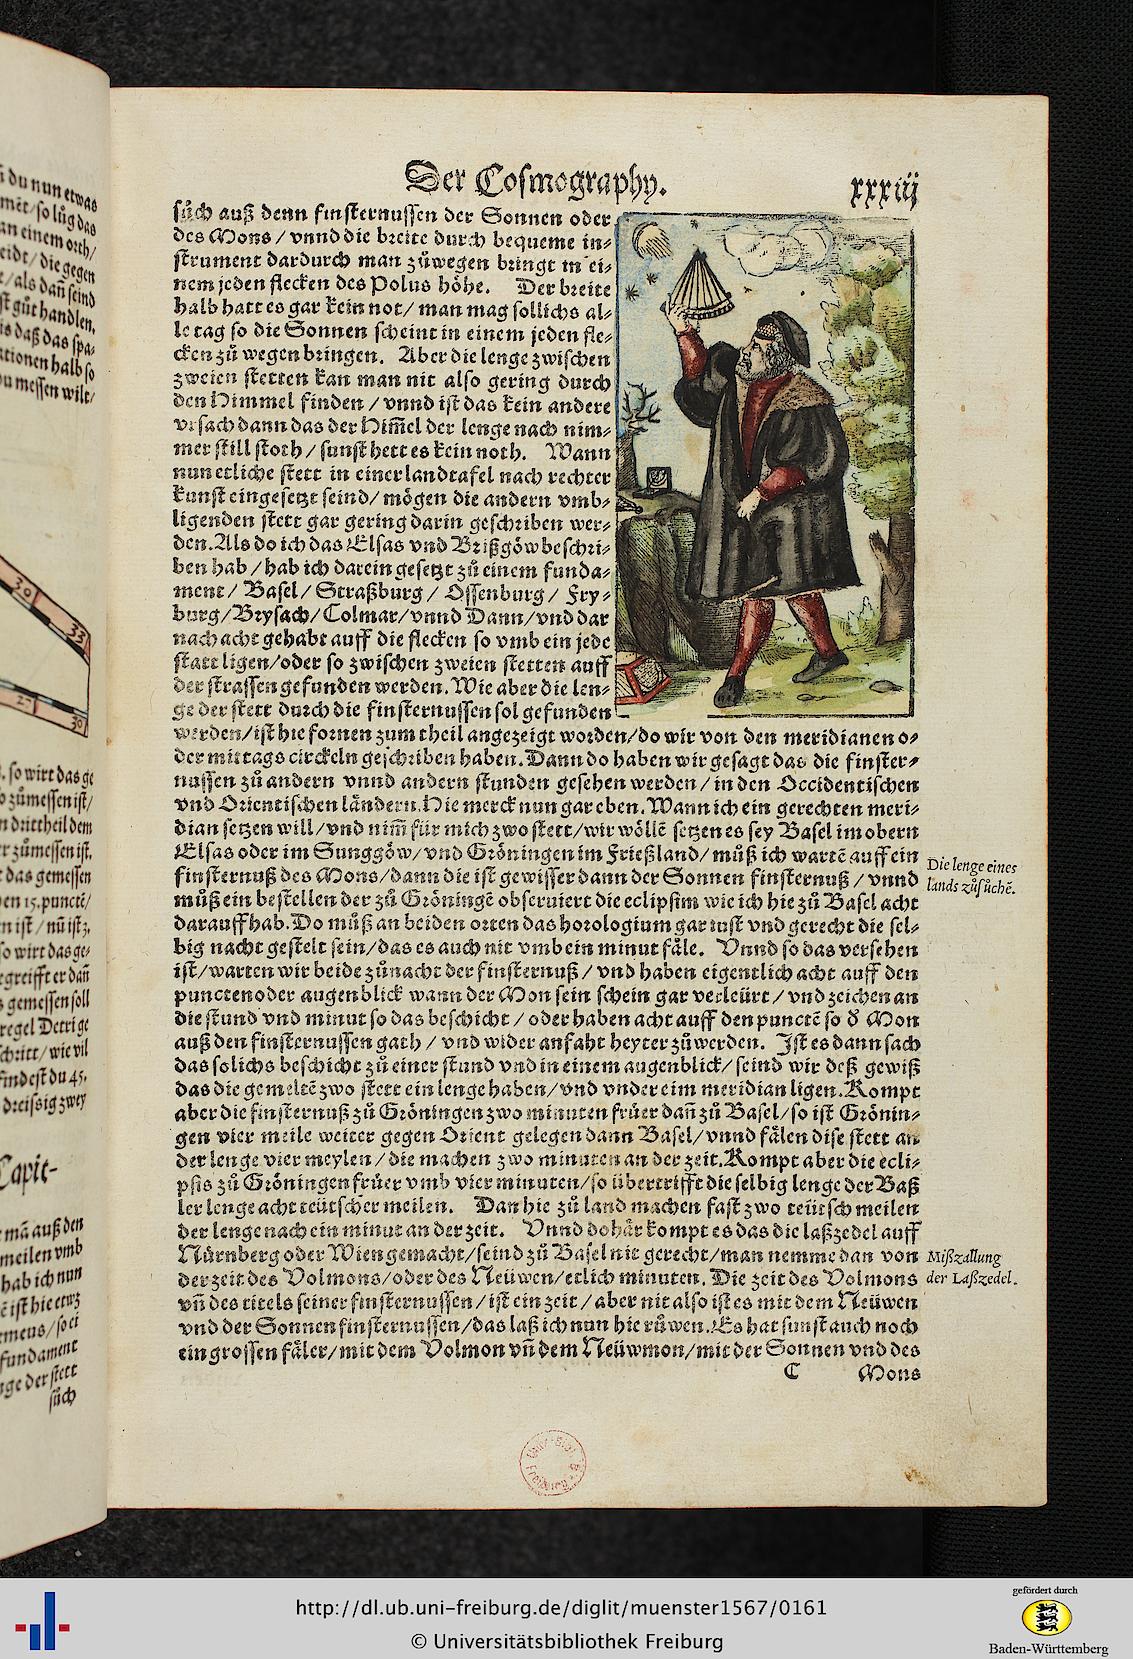 Der Cosmography.
xxxiij
sůch auß denn finsternussen der Sonnen oder
des Mons / vnnd die breite durch bequeme in⸗
strument dardurch man zůwegen bringt in ei⸗
nem jeden flecken des Polus höhe. Der breite
halb hatt es gar kein not / man mag sollichs al⸗
le tag so die Sonnen scheint in einem jeden fle⸗
cken zů wegen bringen. Aber die lenge zwischen
zweien stetten kan man nit also gering durch
den Himmel finden / vnnd ist das kein andere
vrsach dann das der Him̄el der lenge nach nim⸗
mer still stoth / sunst hett es kein noth. Wann
nun etliche stett in einer landtafel nach rechter
kunst eingesetzt seind / mögen die andern vmb⸗
ligenden stett gar gering darin geschriben wer⸗
den. Als do ich das Elsas vnd Brißgöw beschri⸗
ben hab / hab ich darein gesetzt zů einem funda⸗
ment / Basel / Straßburg / Offenburg / Fry⸗
burg / Brysach / Colmar / vnnd Dann / vnd dar
nach acht gehabt auff die flecken so vmb ein jede
statt ligen / oder so zwischen zweien stetten auff
der strassen gefunden werden. Wie aber die len⸗
ge der stett durch die finsternussen sol gefunden
werden / ist hie fornen zum theil angezeigt worden / do wir von den meridianen o⸗
der mittags circkeln geschriben haben. Dann do haben wir gesagt das die finster⸗
nussen zů andern vnnd andern stunden gesehen werden / in den Occidentischen
vnd Orientischen ländern. Hie merck nun gar eben. Wann ich ein gerechten meri⸗
dian setzen will / vnd nim̄ für mich zwo stett / wir wöllē setzen es sey Basel im obern
Elsas oder im Sunggöw / vnd Gröningen im Frießland / můß ich wartē auff ein
finsternuß des Mons / dann die ist gewisser dann der Sonnen finsternuß / vnnd
můß ein bestellen der zů Gröningē obseruiert die eclipsim wie ich hie zů Basel acht
darauff hab. Do můß an beiden orten das horologium gar iust vnd gerecht die sel⸗
big nacht gestelt sein / das es auch nit vmb ein minut fäle. Vnnd so das versehen
ist / warten wir beide zů nacht der finsternuß / vnd haben eigentlich acht auff den
puncten oder augenblick wann der Mon sein schein gar verleürt / vnd zeichen an
die stund vnd minut so das beschicht / oder haben acht auff den punctē so d' Mon
auß den finsternussen gath / vnd wider anfaht heyter zů werden. Ist es dann sach
das solichs beschicht zů einer stund vnd in einem augenblick / seind wir deß gewiß
das die gemeltē zwo stett ein lenge haben / vnd vnder eim meridian ligen. Kompt
aber die finsternuß zů Gröningen zwo minuten früer dan̄ zů Basel / so ist Grönin⸗
gen vier meile weiter gegen Orient gelegen dann Basel / vnnd fälen dise stett an
der lenge vier meylen / die machen zwo minuten an der zeit. Kompt aber die ecli⸗
psis zů Gröningen früer vmb vier minuten / so übertrifft die selbig lenge der Baß
ler lenge acht teütscher meilen. Dan hie zů land machen fast zwo teütsch meilen
der lenge nach ein minut an der zeit. Vnnd do här kompt es das die laßzedel auff
Nürnberg oder Wien gemacht / seind zů Basel nit gerecht / man nemme dan von
der zeit des Volmons / oder des Neüwen / etlich minuten. Die zeit des Volmons
vn̄ des titels seiner finsternussen / ist ein zeit / aber nit also ist es mit dem Neüwen
vnd der Sonnen finsternussen / das laß ich nun hie růwen. Es hat sunst auch noch
ein grossen fäler / mit dem Volmon vn̄ dem Neüwmon / mit der Sonnen vnd des
C Mons
Die lenge eines
lands zůsůchē.
Mißzallung
der Laßzedel.
du nun etwas
so lůg das
an einem orth /
die gegen
als dan̄ seind
gůt handlen,
daß das spa⸗
halb so
messen wilt /
30
33
30
so wirt das ge
zůmessen ist /
drittheil dem
zůmessen ist.
das gemessen
15. puncte /
ist / nū ist 3.
so wirt das ge⸗
er dan̄
gemessen soll
regel Detri ge
wie vil
findest du 45.
dreissig zwey
Capit-
mā auß den
meilen vmb
hab ich nun
ist hie
fundament
der stett
sůch
http://dl.ub.uni-freiburg.de/diglit/muenster1567/0161
© Universitätsbibliothek Freiburg
gefördert durch
Baden-Württemberg